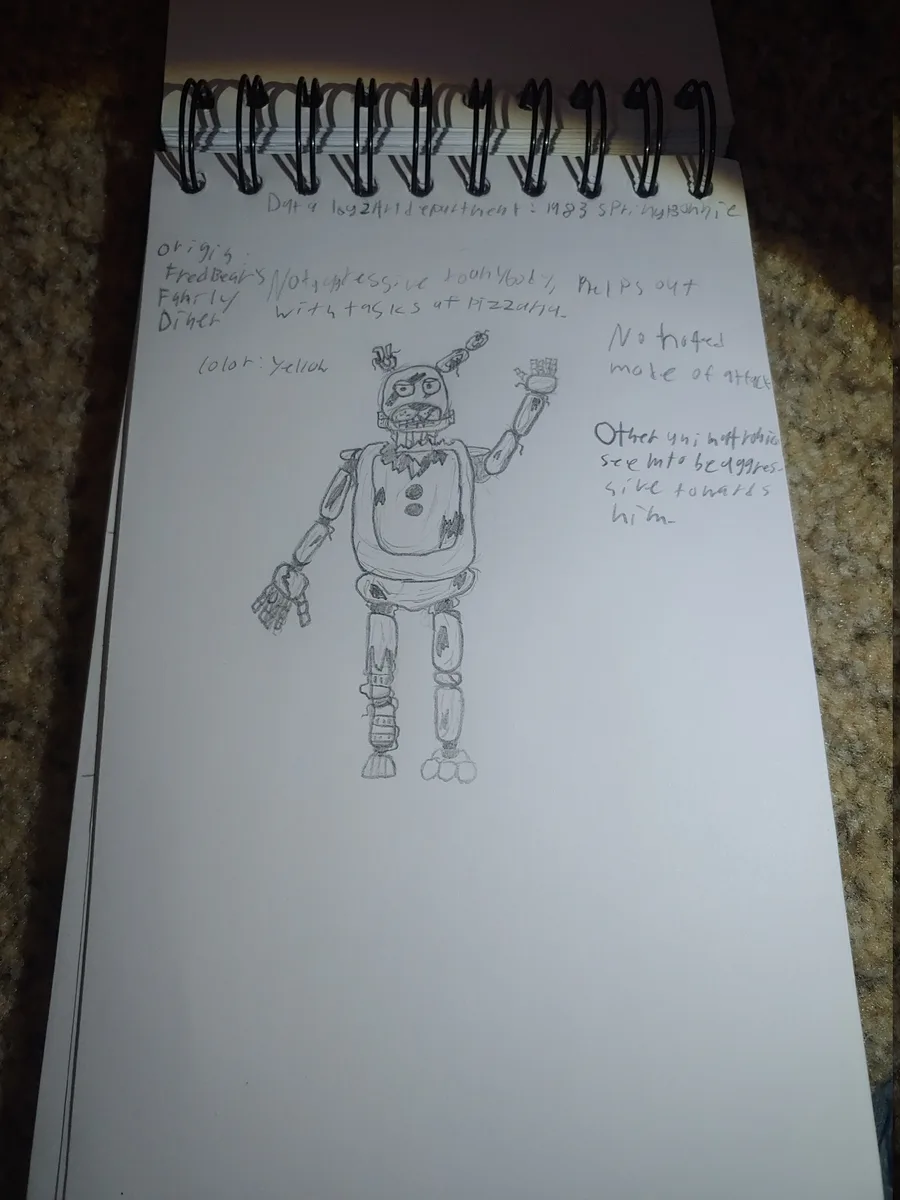 Data log 2 Art department: 1983 springBonnie
origin:
FredBear's
Family
Diner
Not aggressive to anybody, Helps out
with tasks at Pizzaria.
color: Yellow
No noted
mode of attack
Other animattronics
seem to be aggres-
sive towards
him.